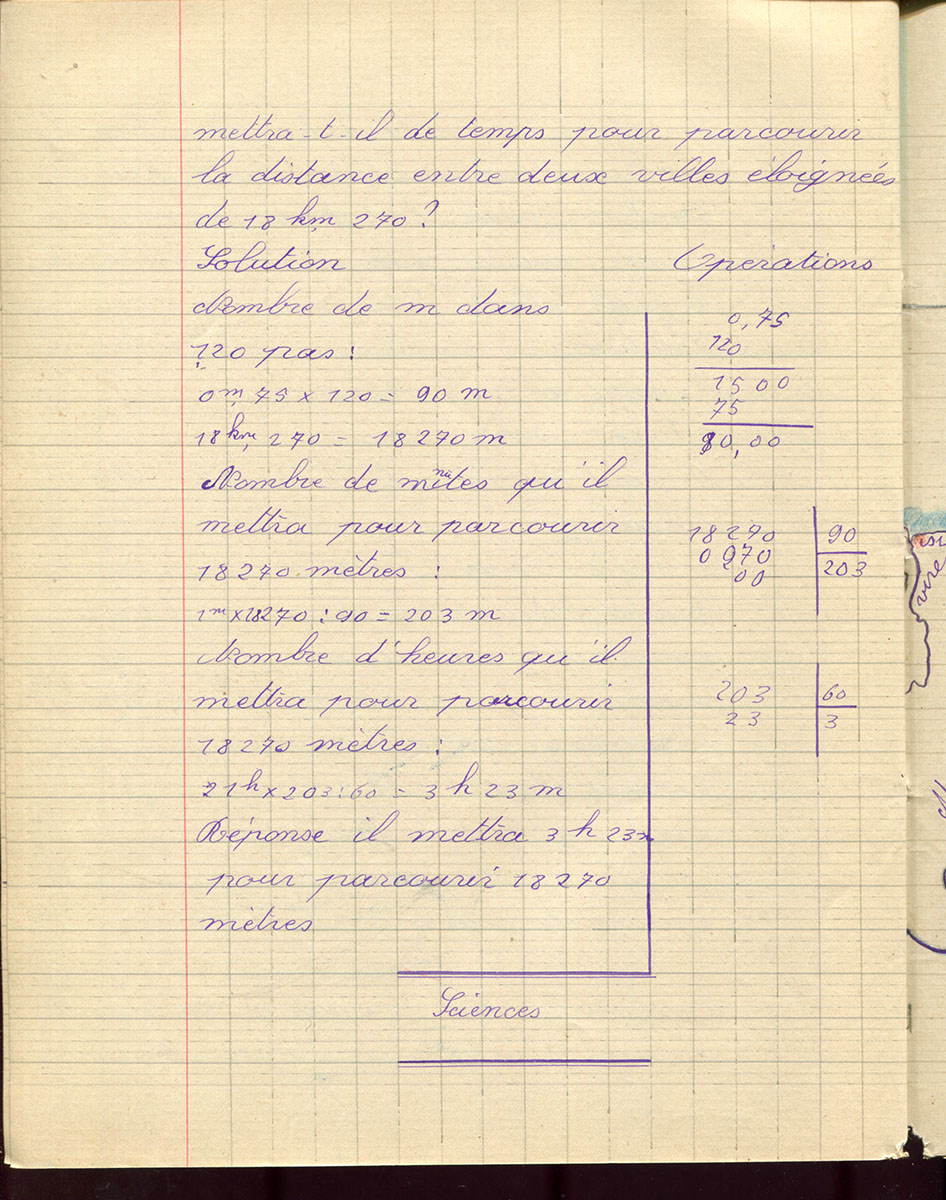 mettra-t-il de temps pour parcourir
la distance entre deux villes éloignées
de 18 km 270?
Solution
Nombre de m dans
120 pas :
0m,75 x 120 = 90 m
18km,270 = 18270 m
Nombre de mnites qu'il
mettra pour parcourir
18270 mètres :
1m x 18270 : 90 = 203 m
Nombre d'heures qu'il
mettra pour parcourir
18270 mètres :
1h x 203 : 60 = 3 h 23 m
Réponse il mettra 3 h 23m
pour parcourir 18270
mètres
Opérations
0,75
120
15 00
75
90,00
18270 90
0 270 203
00
203 60
23 3
Sciences
vire